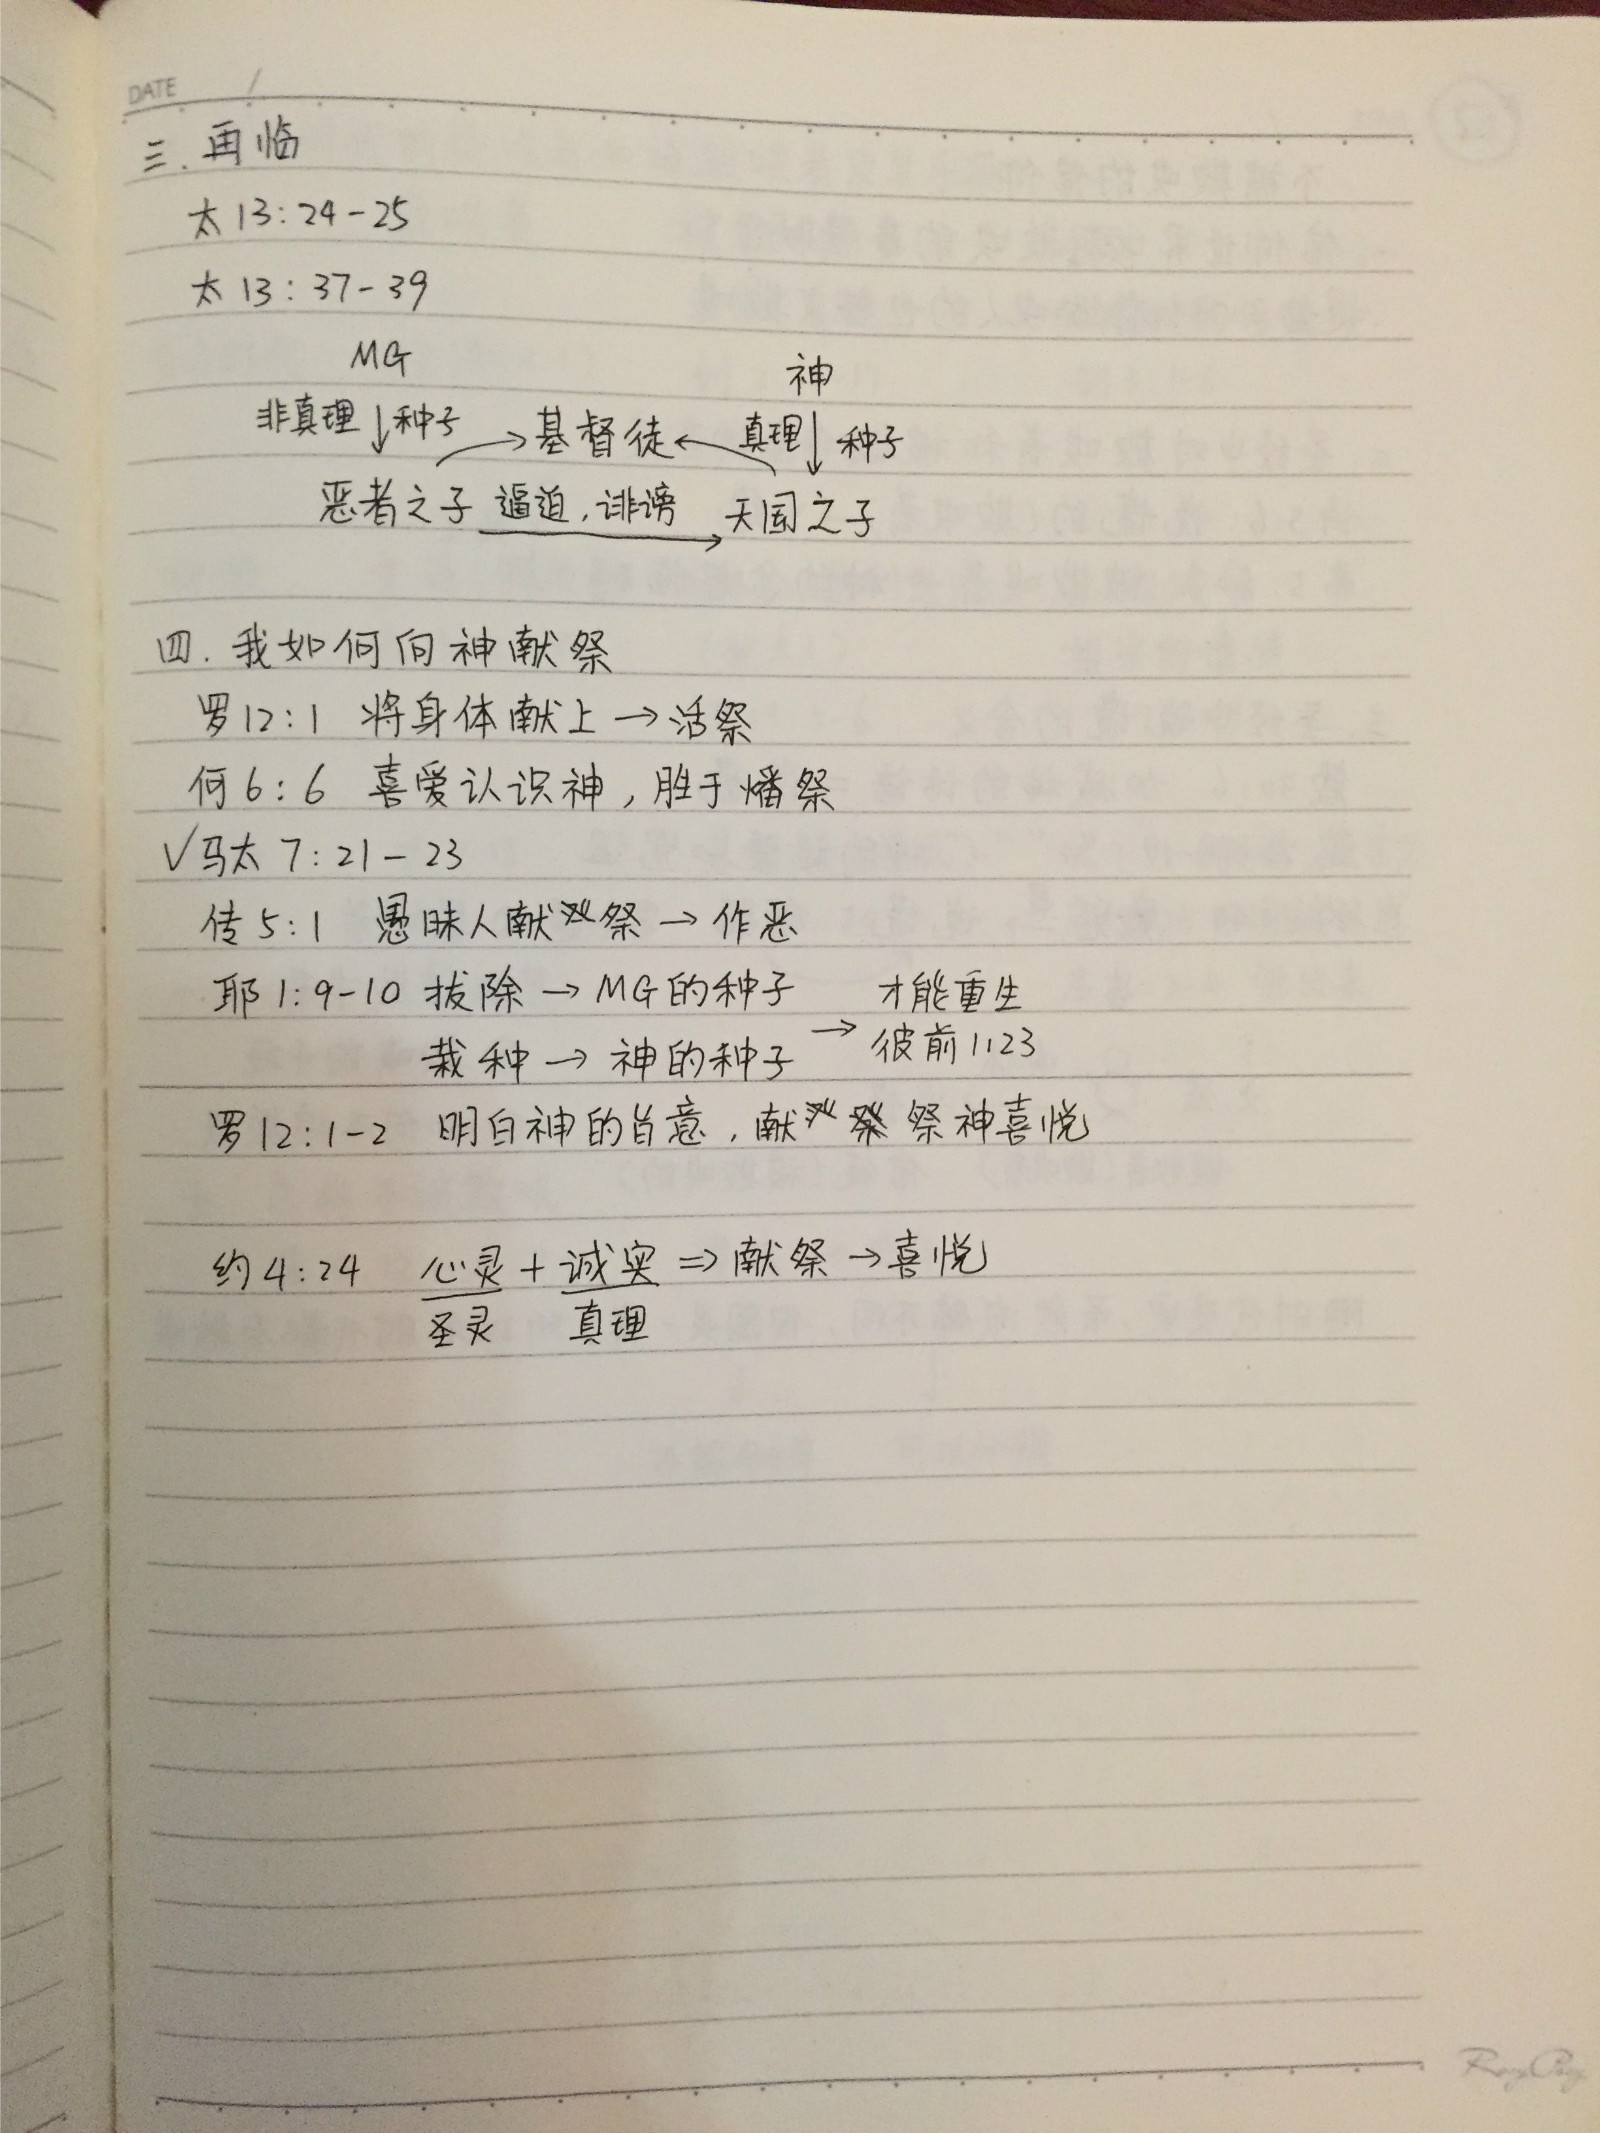 DATE /
三. 再临
太 13:24-25
太 13:37-39
MG 神
非真理↓种子 →基督徒← 真理↓种子
恶者之子 逼迫,诽谤 → 天国之子
四. 我如何向神献祭
罗12:1 将身体献上→活祭
何6:6 喜爱认识神,胜于燔祭
√马太 7:21-23
传5:1 愚昧人献祭→作恶
耶1:9-10 拔除→MG的种子 才能重生
栽种→神的种子 → 彼前1:23
罗12:1-2 明白神的旨意,献祭神喜悦
约4:24 心灵+诚实⇒献祭→喜悦
圣灵 真理